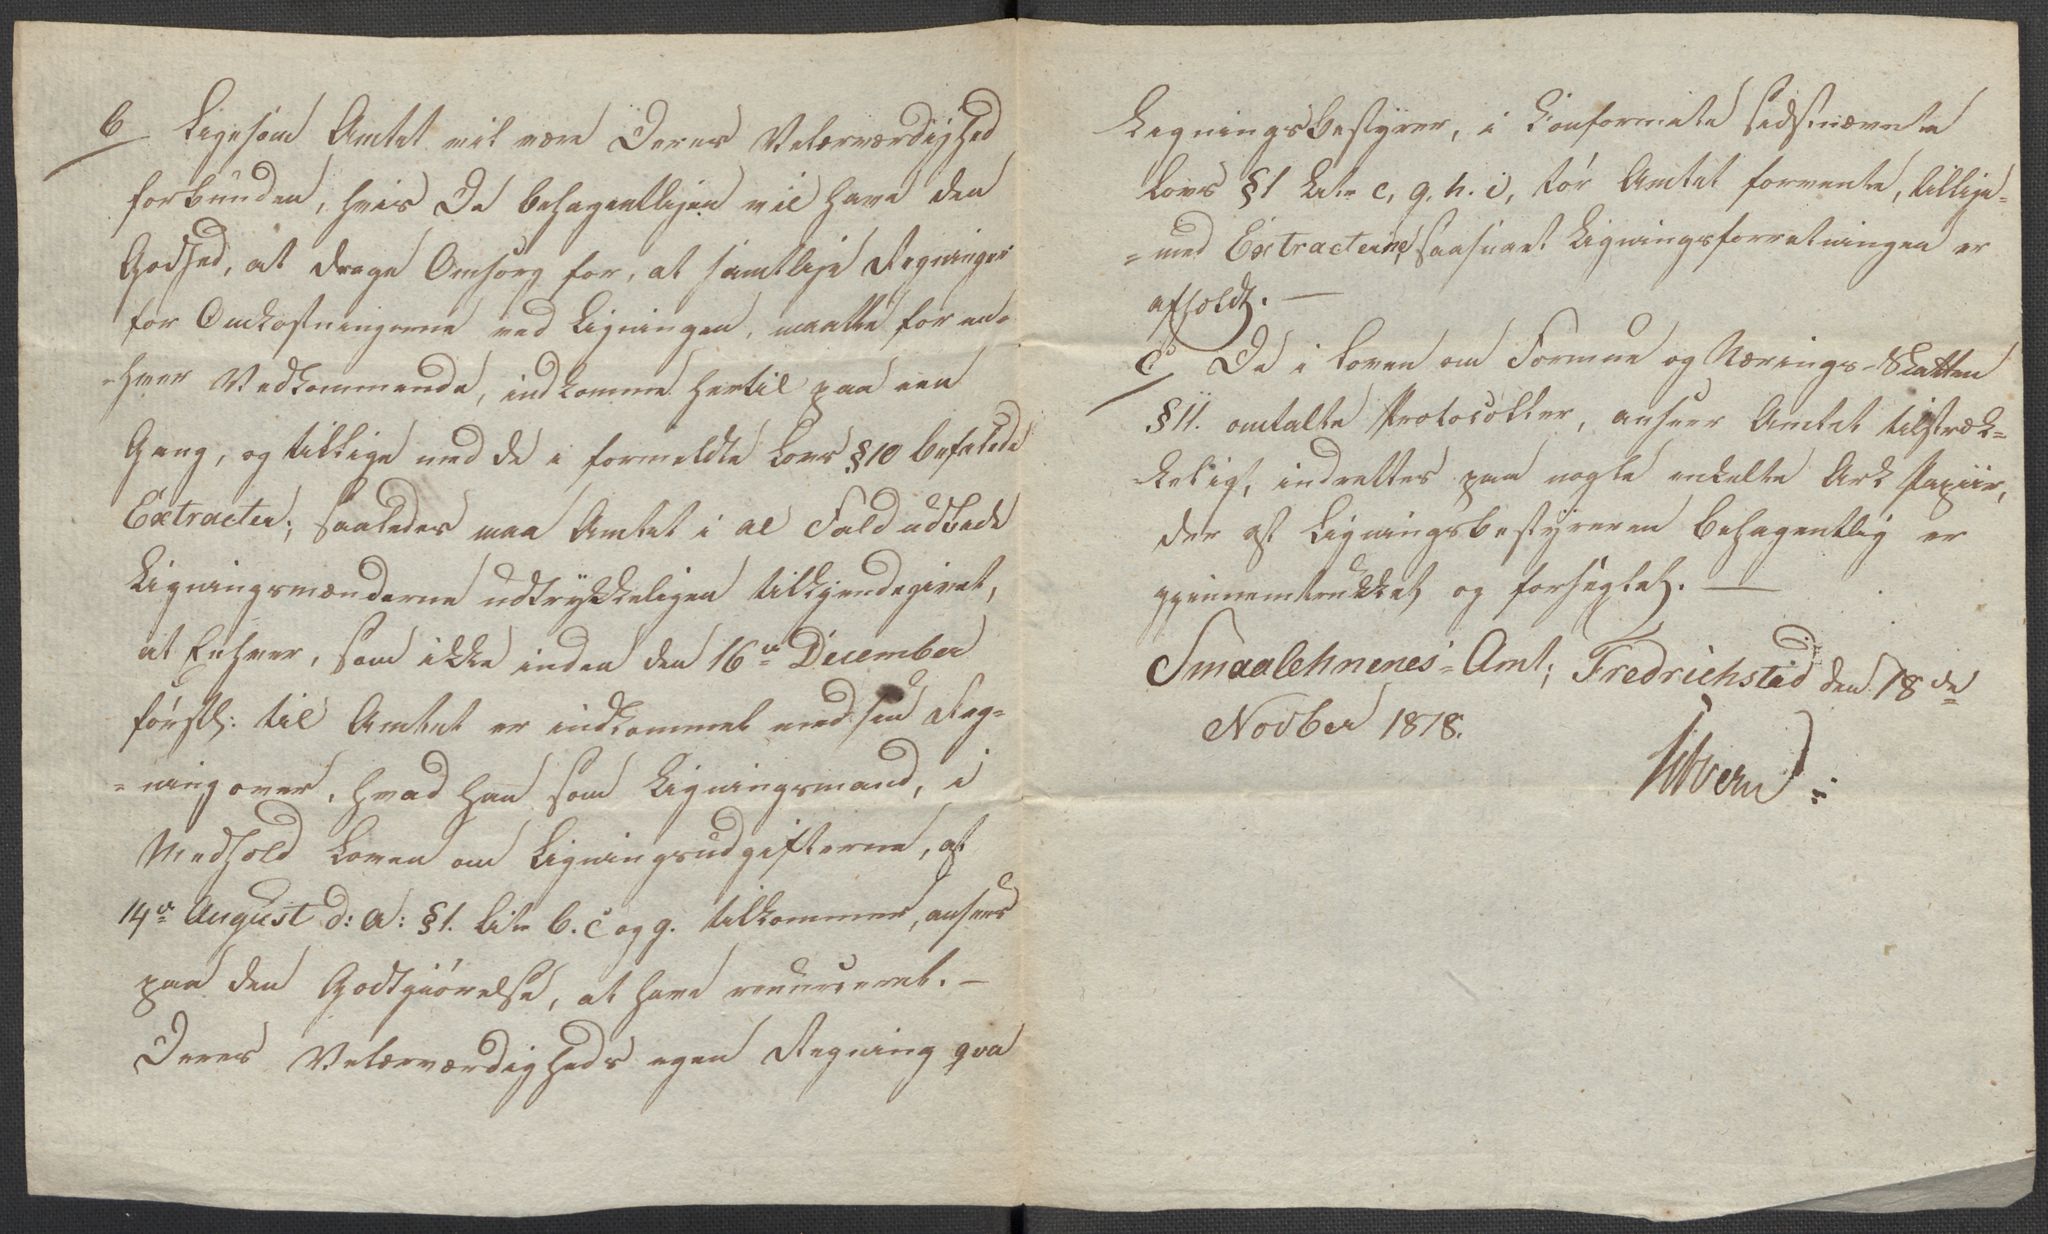 b Ligesom Amtet vil være Deres Velærværdighed
forbunden, hvis De behageligen vil have den
Godhed, at drage Omsorg for, at samtlige Regninger
for Omkostningerne ved Ligningen, maatte for en-
-hver Vedkommende, indkomme hertil paa een
Gang, og tillige med de i formeldte Lovs §10 befalede
Extracter; saaledes maa Amtet i al Fald udbede
Ligningsmænderne udtrykkeligen tilkjendegivet,
at Enhver, som ikke inden den 16de December
førstk: til Amtet er indkommet med sin Reg-
=ning over, hvad han som Ligningsmand, i
Medhold Loven om Ligningsudgifterne, af
14de August d: A: §1. Litr b. c og g. tilkommer, ansees
paa den Godtgjørelse, at have renunceret. —
Deres Velærværdigheds egen Regning qva
Ligningsbestyrer, i Conformite sidstnævnte
Lovs §1 Litr c, g. h. i, tør Amtet forvente, tillige-
=med Extracterne, saasnart Ligningsforretningen er
afholdt. —
c De i Loven om Formue og Nærings-Skatten
§11. omtalte Protocoller, anseer Amtet tilstræk=
-kelig, indrettes paa nogle enkelte Ark Papiir,
der af Ligningsbestyreren behagentlig er
gjennemtrukket og forseglet. —
Smaalehnenes-Amt, Fredrichstad den 18de
Novber 1818.